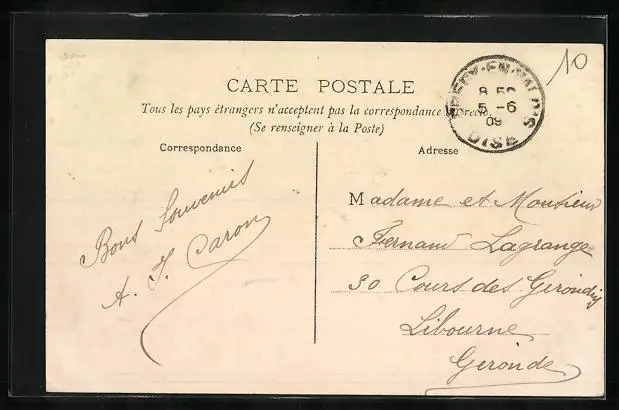 10
CARTE POSTALE
Tous les pays étrangers n'acceptent pas la correspondance
(Se renseigner à la Poste)
CRÉPY-EN-VALOIS
8 50
5 -6
09
OISE
Correspondance
Bons Souvenirs
A. J. Caron
Adresse
Madame et Monsieur
Fernand Lagrange
30 Cours des Girondins
Libourne
Gironde